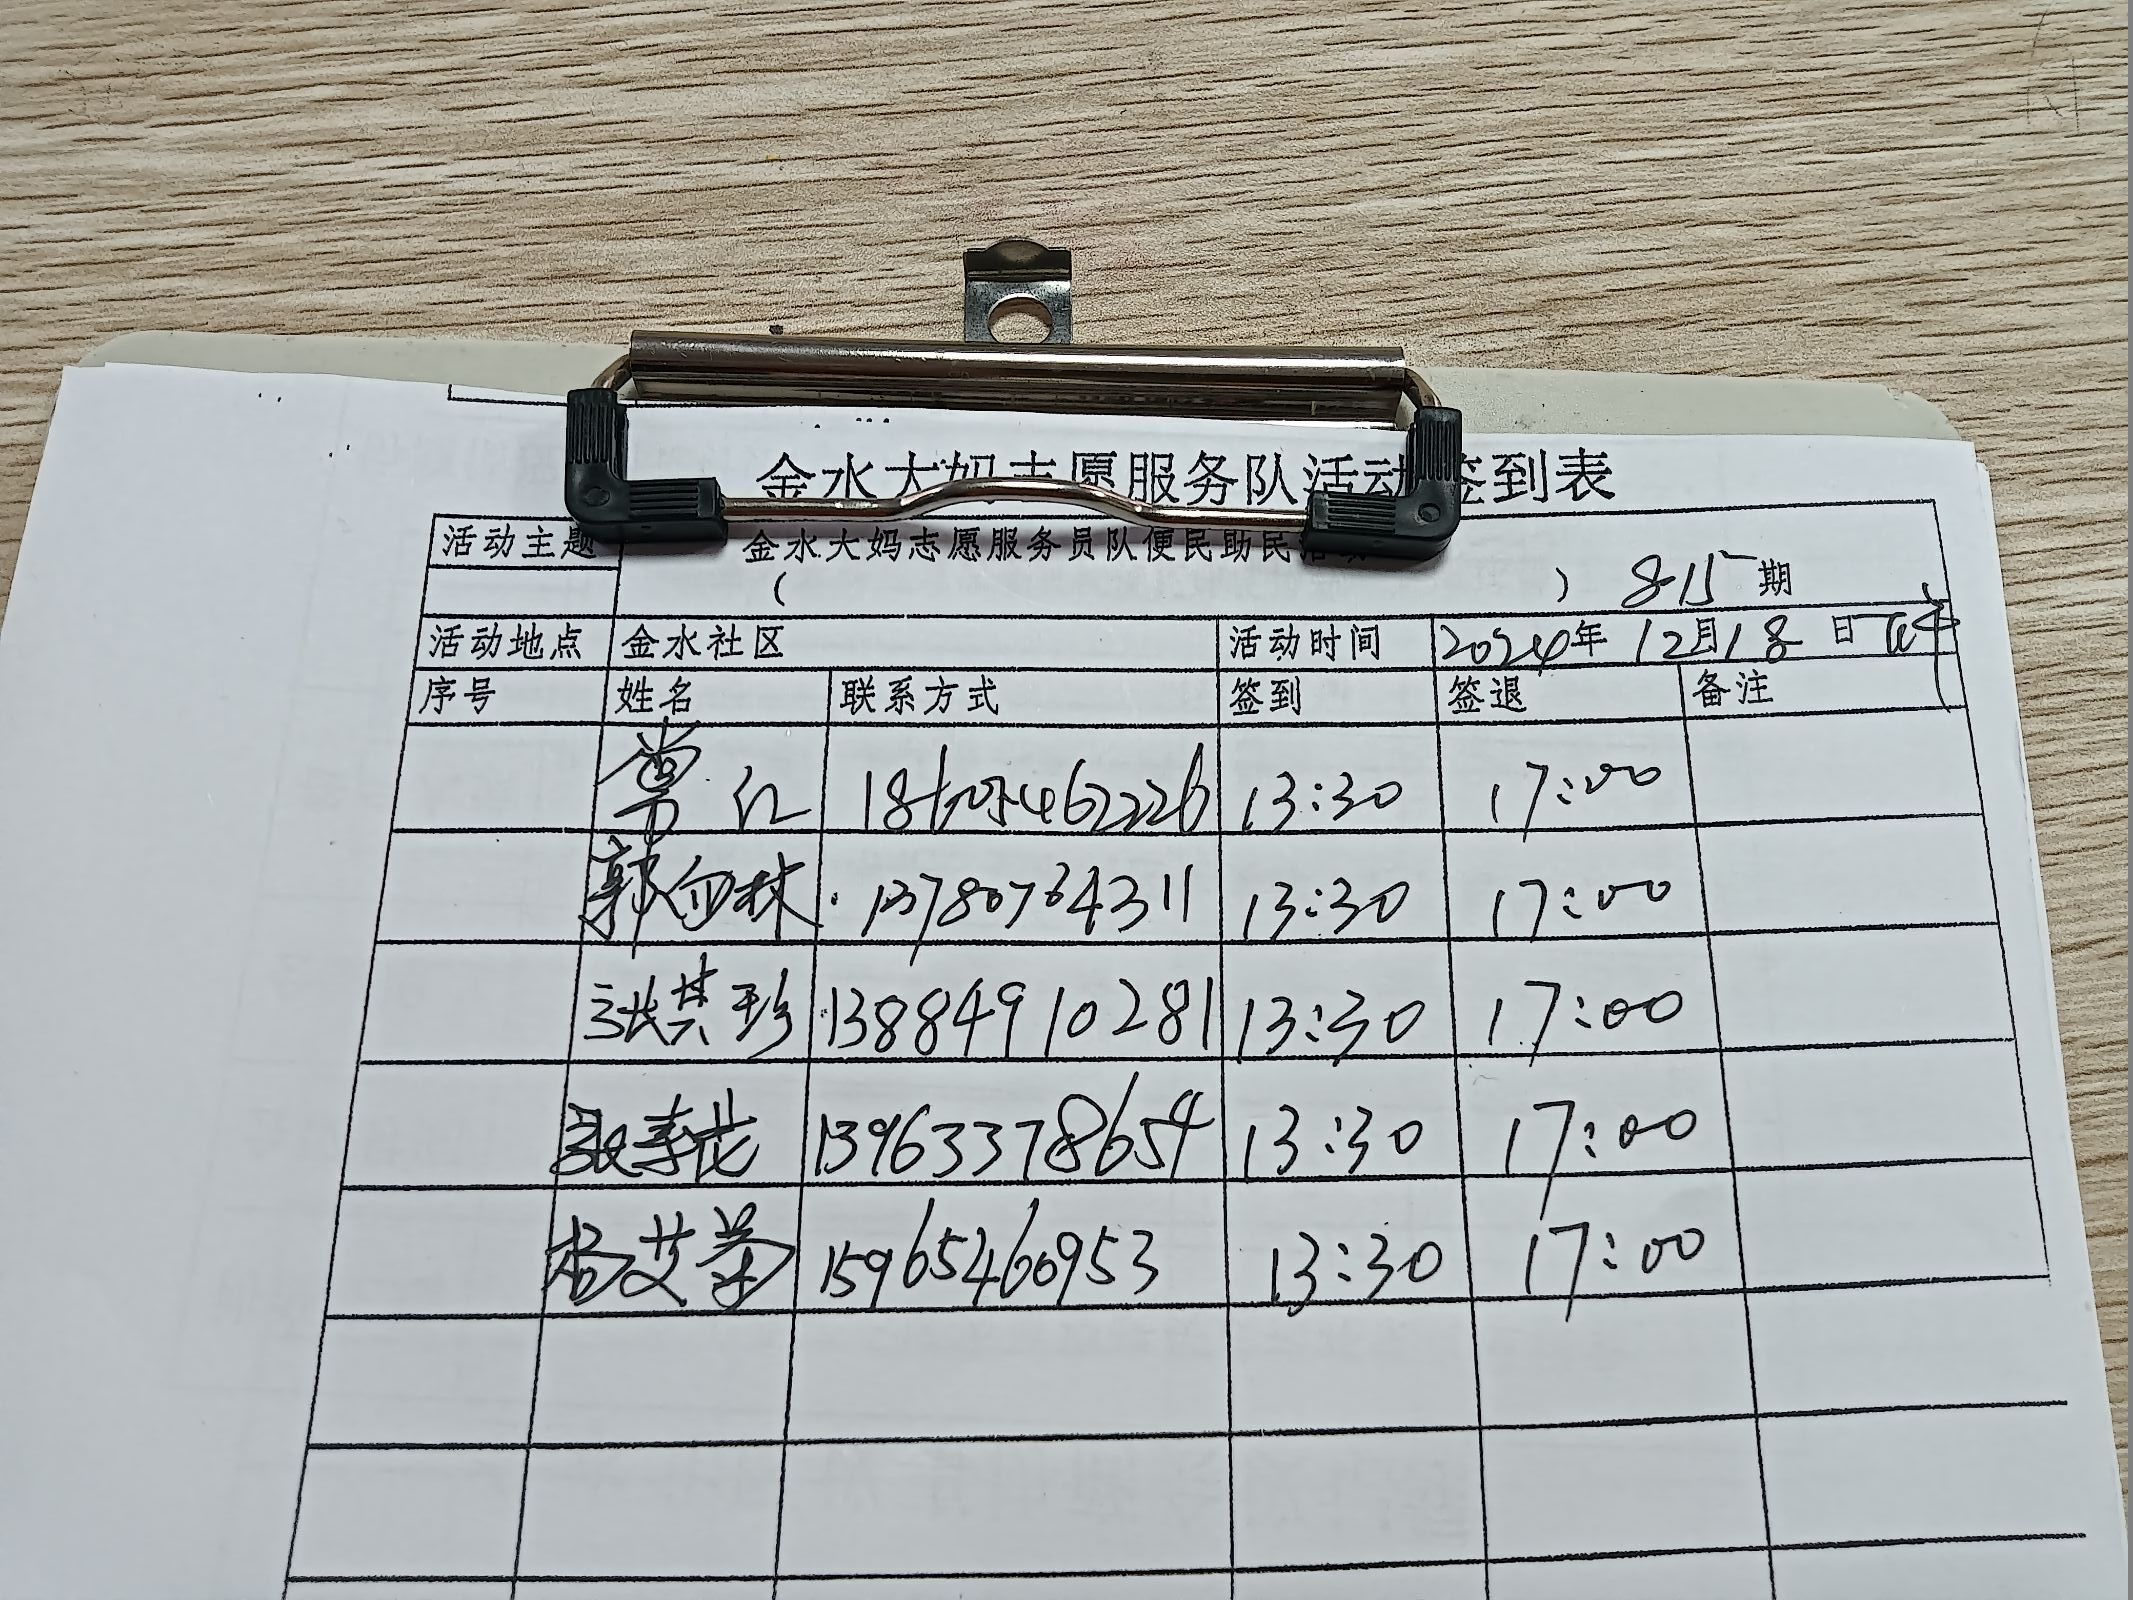 金水大妈志愿服务队活动签到表
活动主题 金水大妈志愿服务员队便民助民活动
( ) 815期
活动地点 金水社区 活动时间 2024年12月18日
序号 姓名 联系方式 签到 签退 备注
常红 18605462226 13:30 17:00
郭向林 13780764311 13:30 17:00
张其珍 13884910281 13:30 17:00
13963378654 13:30 17:00
杨艾荣 15965460953 13:30 17:00